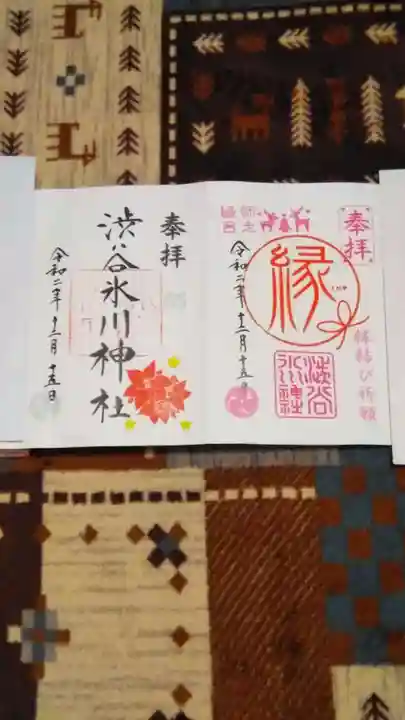 奉拝
縁
縁結び祈願
渋谷氷川神社
令和二年十二月十五日
奉拝
渋谷氷川神社
令和二年十二月十五日